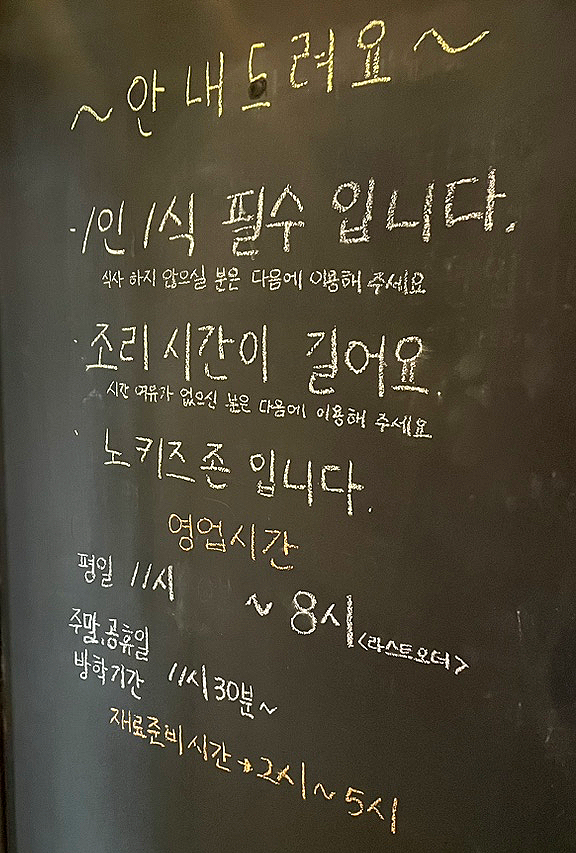 ~안내드려요~
·1인 1식 필수입니다.
식사 하지 않으실 분은 다음에 이용해 주세요
·조리시간이 길어요.
시간 여유가 없으신 분은 다음에 이용해 주세요
·노키즈존입니다.
영업시간
평일 11시
~8시<라스트오더>
주말,공휴일
방학기간 11시30분~
재료준비시간→2시~5시